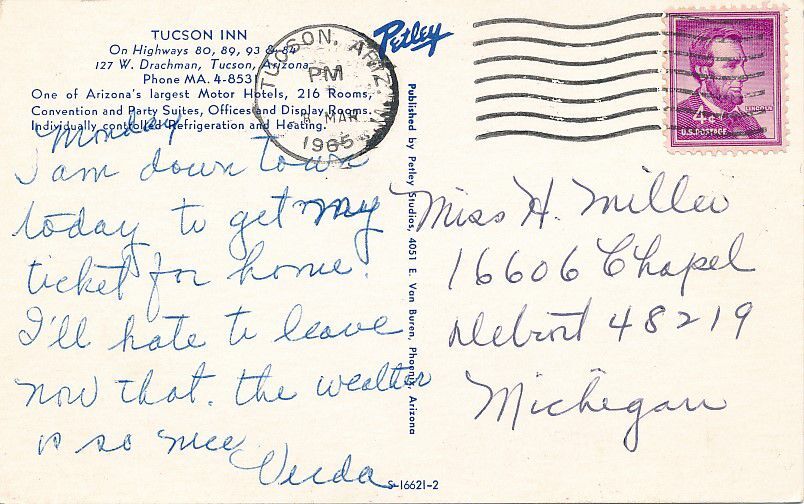 TUCSON INN
On Highways 80, 89, 93 & 84
127 W. Drachman, Tucson, Arizona
Phone MA. 4-8531
One of Arizona's largest Motor Hotels, 216 Rooms,
Convention and Party Suites, Offices and Display Rooms.
Individually controlled Refrigeration and Heating.
Petley
TUCSON, ARIZ.
PM
8 MAR
1965
LINCOLN
4¢
U.S. POSTAGE
Monday
I am down town
today to get my
ticket for home.
I'll hate to leave
now that. the weather
is so nice
Verda
Published by Petley Studios, 4051 E. Van Buren, Phoenix, Arizona
Miss H. Miller
16606 Chapel
Detroit 48219
Michegan
S-16621-2